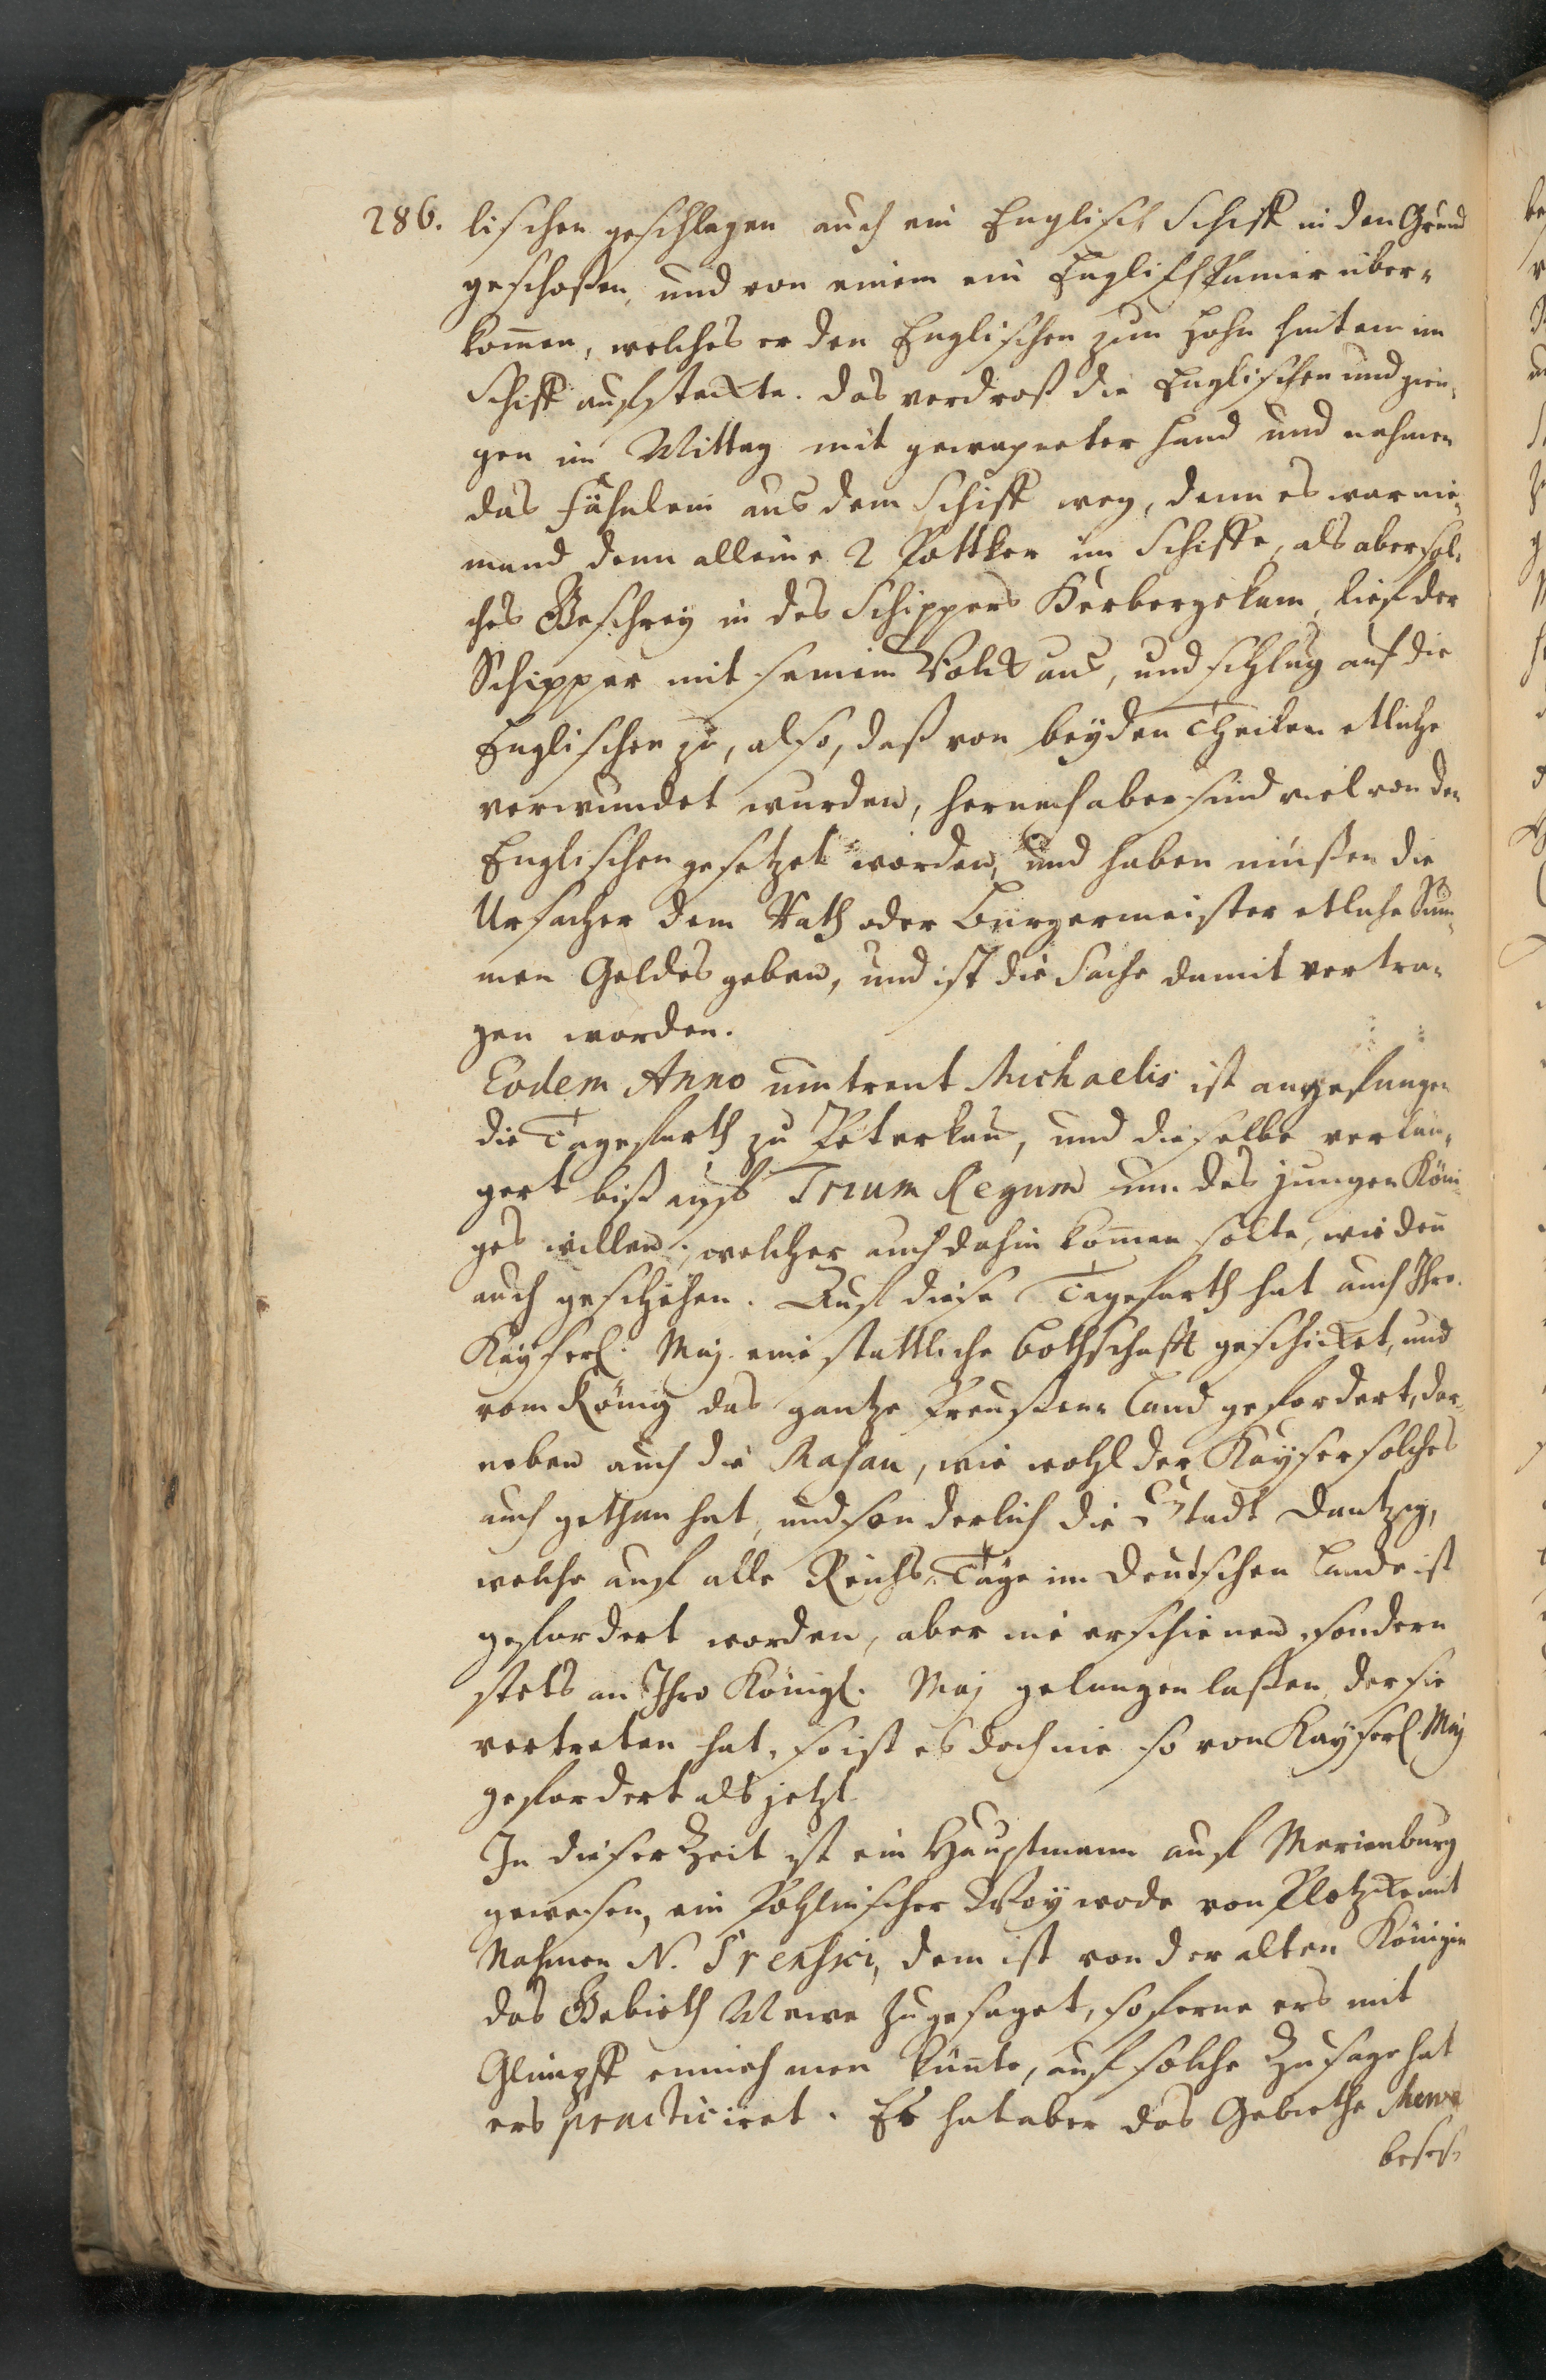 286. lischen geschlagen auch ein Englisch Schiff in den Grund
geschoßen, und von einem ein Englisch Panier über-
kom̄en, welches er den Englischen zum Hohn hinten im
Schiff aufsteckte. das verdroß die Englischen und gien-
gen im Mittag mit gewapneter Hand und nahmen
das Fähnlein aus dem Schiff weg, denn es war nie-
mand denn alleine 2 Pottker im Schiffe, als aber sol-
ches Geschrey in des Schippers Herberge kam, lief der
Schipper mit seinem Volck aus, und schlug auf die
Englischen zu, also, daß von beyden Theilen etliche
verwundet wurden, hernach aber sind viel von den
Englischen gesetzet worden, und haben müßen die
Ursacher dem Rath oder Bürgermeister etliche Sum-
men Geldes geben, und ist die Sache damit vertra-
gen worden.
Eodem Anno umtrent Michaelis ist angefangen
die Tagefarth zu Peterkau, und dieselbe verlän-
gert biß auff Trium Regum um des jungen Köni-
ges willen, welcher auch dahin kom̄en solte, wie den̄
auch geschehen. Auf diese Tagefarth hat auch Ihro
Käyserl. Maj. eine stattliche Bothschafft geschicket, und
vom König das gantze Preußen Land gefordert, der-
neben auch die Masau, wie wohl der Käyser solches
auch gethan hat, und sonderlich die Stadt Dantzig,
welche auf alle Reichs-Tage im deutschen Lande ist
gefordert worden, aber nie erschienen, sondern
stets an Ihro Königl. Maj gelangen laßen, der sie
vertreten hat, so ist es doch nie so von Kayserl. Maj
gefordert als jetzt.
In dieser Zeit ist ein Hauptmann auf Marienburg
gewesen, ein Pohlnischer Woywode von Plotzke mit
Nahmen N. Srenski, dem ist von der alten Königin
das Gebieth Mewe zugesaget, soferne ers mit
Glimpff einnehmen kün̄te, auf solche Zusage hat
ers practiciret. Es hat aber das Gebiethe Mewe